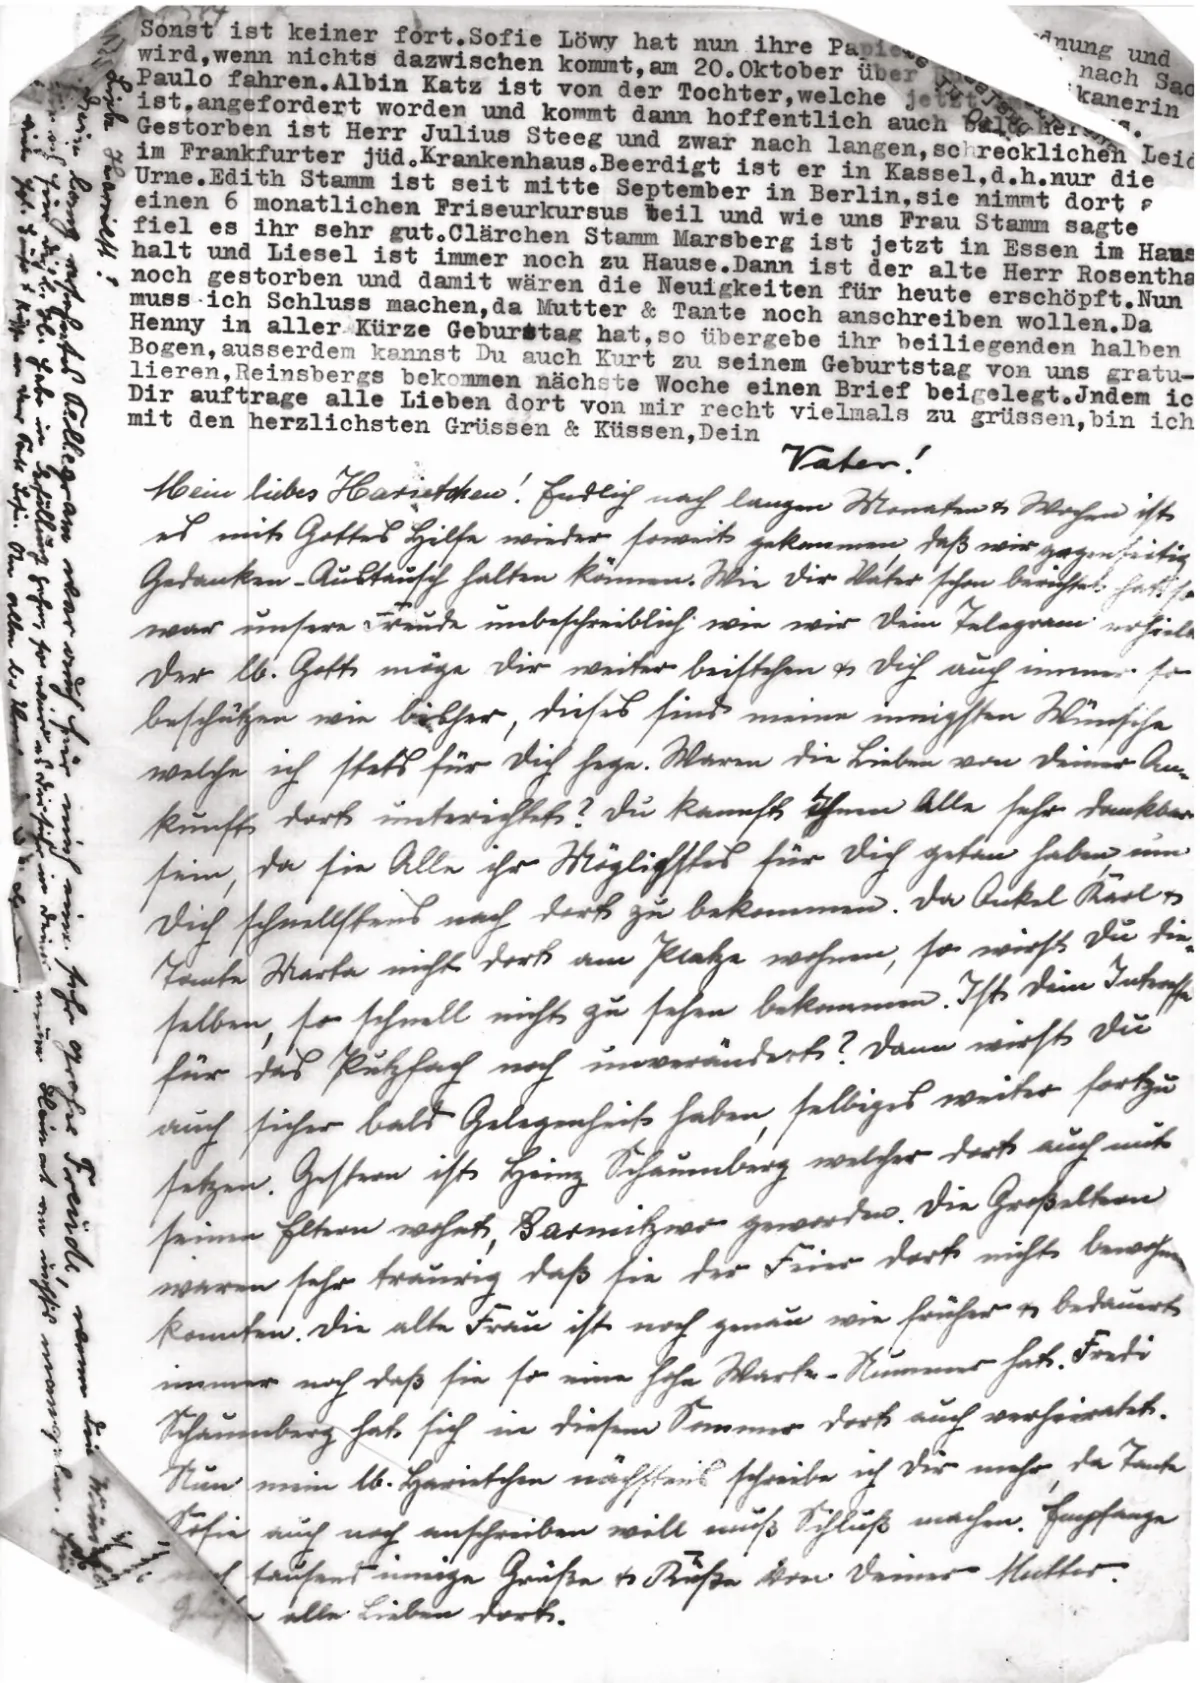 Sonst ist keiner fort.Sofie Löwy hat nun ihre Papie dnung und
wird,wenn nichts dazwischen kommt,am 20.Oktober über nach Sao
Paulo fahren.Albin Katz ist von der Tochter,welche jetzt kanerin
ist.angefordert worden und kommt dann hoffentlich auch bald
Gestorben ist Herr Julius Steeg und zwar nach langen,schrecklichen Leid
im Frankfurter jüd.Krankenhaus.Beerdigt ist er in Kassel,d.h.nur die
Urne.Edith Stamm ist seit mitte September in Berlin,sie nimmt dort
einen 6 monatlichen Friseurkursus teil und wie uns Frau Stamm sagte
fiel es ihr sehr gut.Clärchen Stamm Marsberg ist jetzt in Essen im Haus
halt und Liesel ist immer noch zu Hause.Dann ist der alte Herr Rosentha
noch gestorben und damit wären die Neuigkeiten für heute erschöpft.Nun
muss ich Schluss machen,da Mutter & Tante noch anschreiben wollen.Da
Henny in aller Kürze Geburtstag hat,so übergebe ihr beiliegenden halben
Bogen,ausserdem kannst Du auch Kurt zu seinem Geburtstag von uns gratu-
lieren,Reinsbergs bekommen nächste Woche einen Brief beigelegt.Jndem ic
Dir auftrage alle Lieben dort von mir recht vielmals zu grüssen,bin ich
mit den herzlichsten Grüssen & Küssen,Dein
Vater!
Mein liebes Harietchen! Endlich nach langen Monaten & Wochen ist
es mit Gottes Hilfe wieder soweit gekommen, daß wir gegenseitig
Gedanken-Austausch halten können. Wie Dir Vater schon berichtet hat, so
war unsere Freude unbeschreiblich wie wir Dein Telegram erhielt
Der lb. Gott möge Dir weiter beistehen & Dich auch immer so
beschützen wie bisher, dieses sind meine innigsten Wünsche
welche ich stets für Dich hege. Waren die Lieben von Deiner An-
kunft dort unterichtet? Du kannst Ihnen Alle sehr dankbar
sein, da sie Alle ihr Möglichstes für Dich getan haben, um
Dich schnellstens nach dort zu bekommen. Da Onkel Karl &
Tante Marta nicht dort am Platze wohnen, so wirst Du die-
selben, so schnell nicht zu sehen bekommen. Ist Dein Interesse
für das Putzfach noch unverändert? Dann wirst Du
auch sicher bald Gelegenheit haben, selbiges weiter fortzu
setzen. Gestern ist Heinz Schaumberg welcher dort auch mit
seinen Eltern wohnt, Barmitzwo geworden. Die Großeltern
waren sehr traurig daß sie der Feier dort nicht
konnten. Die alte Frau ist noch genau wie früher & bedauert
immer noch daß sie so eine hohe Warte-Nummer hat. Fredi
Schaumberg hat sich in diesem Sommer dort auch verheiratet.
Nun mein lb. Harietchen nächstens schreibe ich Dir mehr, da Tante
Sofie auch noch anschreiben will muß Schluß machen. Empfange
noch tausend innige Grüße & Küße von Deiner Mutter.
alle Lieben dort.
Liebe Hariett!
Dein lang ersehntes Telegram war auch für mich eine sehr große Freude, wenn die